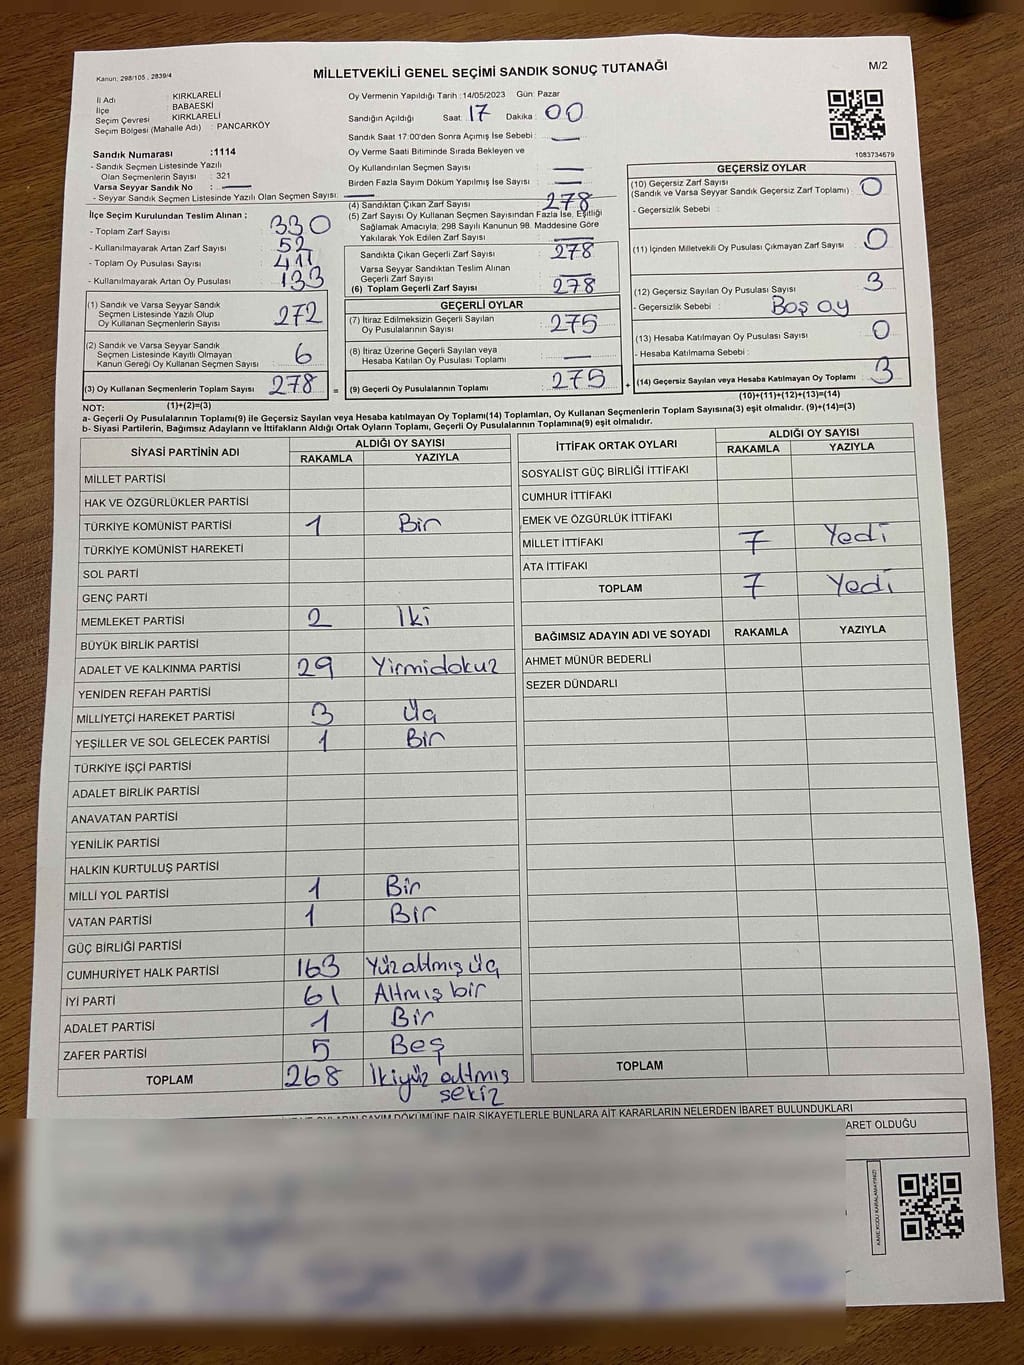 Kanun: 298/105 , 2839/4
MİLLETVEKİLİ GENEL SEÇİMİ SANDIK SONUÇ TUTANAĞI
M/2
İl Adı : KIRKLARELİ
İlçe : BABAESKİ
Seçim Çevresi : KIRKLARELİ
Seçim Bölgesi (Mahalle Adı) : PANCARKÖY
Sandık Numarası :1114
- Sandık Seçmen Listesinde Yazılı
Olan Seçmenlerin Sayısı : 321
Varsa Seyyar Sandık No : —
- Seyyar Sandık Seçmen Listesinde Yazılı Olan Seçmen Sayısı: —
Oy Vermenin Yapıldığı Tarih :14/05/2023 Gün: Pazar
Sandığın Açıldığı Saat 17 Dakika 00
Sandık Saat 17:00'den Sonra Açımış İse Sebebi : —
Oy Verme Saati Bitiminde Sırada Bekleyen ve
Oy Kullandırılan Seçmen Sayısı —
Birden Fazla Sayım Döküm Yapılmış İse Sayısı : —
1083734679
İlçe Seçim Kurulundan Teslim Alınan ;
- Toplam Zarf Sayısı : 330
- Kullanılmayarak Artan Zarf Sayısı : 52
- Toplam Oy Pusulası Sayısı : 411
- Kullanılmayarak Artan Oy Pusulası : 133
(1) Sandık ve Varsa Seyyar Sandık
Seçmen Listesinde Yazılı Olup
Oy Kullanan Seçmenlerin Sayısı : 272
(2) Sandık ve Varsa Seyyar Sandık
Seçmen Listesinde Kayıtlı Olmayan
Kanun Gereği Oy Kullanan Seçmen Sayısı : 6
(3) Oy Kullanan Seçmenlerin Toplam Sayısı : 278 =
(1)+(2)=(3)
(4) Sandıktan Çıkan Zarf Sayısı : 278
(5) Zarf Sayısı Oy Kullanan Seçmen Sayısından Fazla İse, Eşitliği
Sağlamak Amacıyla, 298 Sayılı Kanunun 98. Maddesine Göre
Yakılarak Yok Edilen Zarf Sayısı : —
Sandıkta Çıkan Geçerli Zarf Sayısı : 278
Varsa Seyyar Sandıktan Teslim Alınan
Geçerli Zarf Sayısı : —
(6) Toplam Geçerli Zarf Sayısı : 278
GEÇERLİ OYLAR
(7) İtiraz Edilmeksizin Geçerli Sayılan
Oy Pusulalarının Sayısı : 275
(8) İtiraz Üzerine Geçerli Sayılan veya
Hesaba Katılan Oy Pusulası Toplamı : —
(9) Geçerli Oy Pusulalarının Toplamı : 275 +
GEÇERSİZ OYLAR
(10) Geçersiz Zarf Sayısı
(Sandık ve Varsa Seyyar Sandık Geçersiz Zarf Toplamı) : 0
- Geçersizlik Sebebi :
(11) İçinden Milletvekili Oy Pusulası Çıkmayan Zarf Sayısı : 0
(12) Geçersiz Sayılan Oy Pusulası Sayısı : 3
- Geçersizlik Sebebi : Boş oy
(13) Hesaba Katılmayan Oy Pusulası Sayısı : 0
- Hesaba Katılmama Sebebi :
(14) Geçersiz Sayılan veya Hesaba Katılmayan Oy Toplamı : 3
(10)+(11)+(12)+(13)=(14)
NOT:
a- Geçerli Oy Pusulalarının Toplamı(9) ile Geçersiz Sayılan veya Hesaba katılmayan Oy Toplamı(14) Toplamları, Oy Kullanan Seçmenlerin Toplam Sayısına(3) eşit olmalıdır. (9)+(14)=(3)
b- Siyasi Partilerin, Bağımsız Adayların ve İttifakların Aldığı Ortak Oyların Toplamı, Geçerli Oy Pusulalarının Toplamına(9) eşit olmalıdır.
SİYASİ PARTİNİN ADI ALDIĞI OY SAYISI
RAKAMLA YAZIYLA
MİLLET PARTİSİ
HAK VE ÖZGÜRLÜKLER PARTİSİ
TÜRKİYE KOMÜNİST PARTİSİ 1 Bir
TÜRKİYE KOMÜNİST HAREKETİ
SOL PARTİ
GENÇ PARTİ
MEMLEKET PARTİSİ 2 İki
BÜYÜK BİRLİK PARTİSİ
ADALET VE KALKINMA PARTİSİ 29 Yirmidokuz
YENİDEN REFAH PARTİSİ
MİLLİYETÇİ HAREKET PARTİSİ 3 Üç
YEŞİLLER VE SOL GELECEK PARTİSİ 1 Bir
TÜRKİYE İŞÇİ PARTİSİ
ADALET BİRLİK PARTİSİ
ANAVATAN PARTİSİ
YENİLİK PARTİSİ
HALKIN KURTULUŞ PARTİSİ
MİLLİ YOL PARTİSİ 1 Bir
VATAN PARTİSİ 1 Bir
GÜÇ BİRLİĞİ PARTİSİ
CUMHURİYET HALK PARTİSİ 163 Yüzaltmış üç
İYİ PARTİ 61 Altmış bir
ADALET PARTİSİ 1 Bir
ZAFER PARTİSİ 5 Beş
TOPLAM 268 İkiyüz altmış
sekiz
İTTİFAK ORTAK OYLARI ALDIĞI OY SAYISI
RAKAMLA YAZIYLA
SOSYALİST GÜÇ BİRLİĞİ İTTİFAKI
CUMHUR İTTİFAKI
EMEK VE ÖZGÜRLÜK İTTİFAKI
MİLLET İTTİFAKI 7 Yedi
ATA İTTİFAKI
TOPLAM 7 Yedi
BAĞIMSIZ ADAYIN ADI VE SOYADI RAKAMLA YAZIYLA
AHMET MÜNÜR BEDERLİ
SEZER DÜNDARLI
TOPLAM
OYLARIN SAYIM DÖKÜMÜNE DAİR ŞİKAYETLERLE BUNLARA AİT KARARLARIN NELERDEN İBARET BULUNDUKLARI
ARET OLDUĞU
KARE KODU KARALAMAYINIZ!